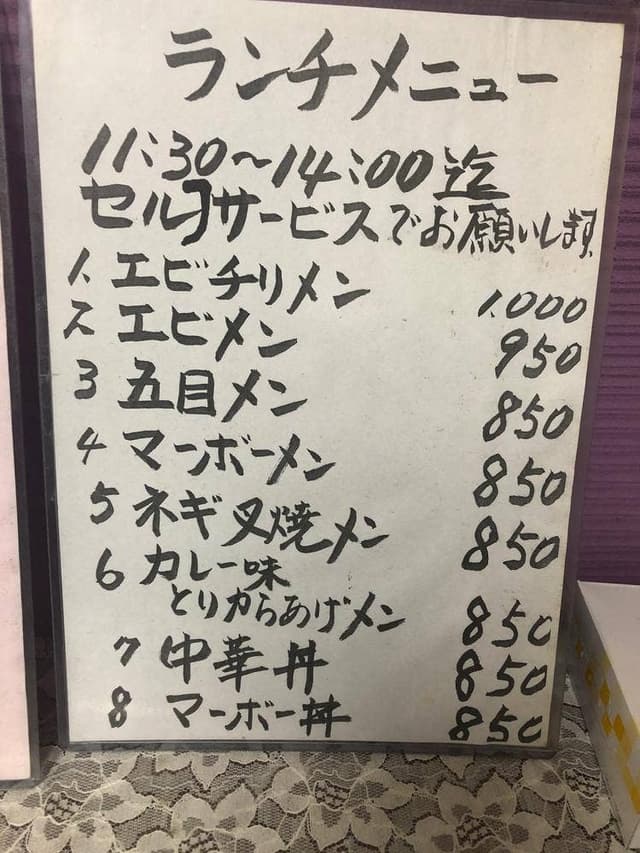 ランチメニュー
11:30～14:00迄
セルフサービスでお願いします
1. エビチリメン 1.000
2 エビメン 950
3 五目メン 850
4 マーボーメン 850
5 ネギ叉焼メン 850
6 カレー味
とりからあげメン 850
7 中華丼 850
8 マーボー丼 850